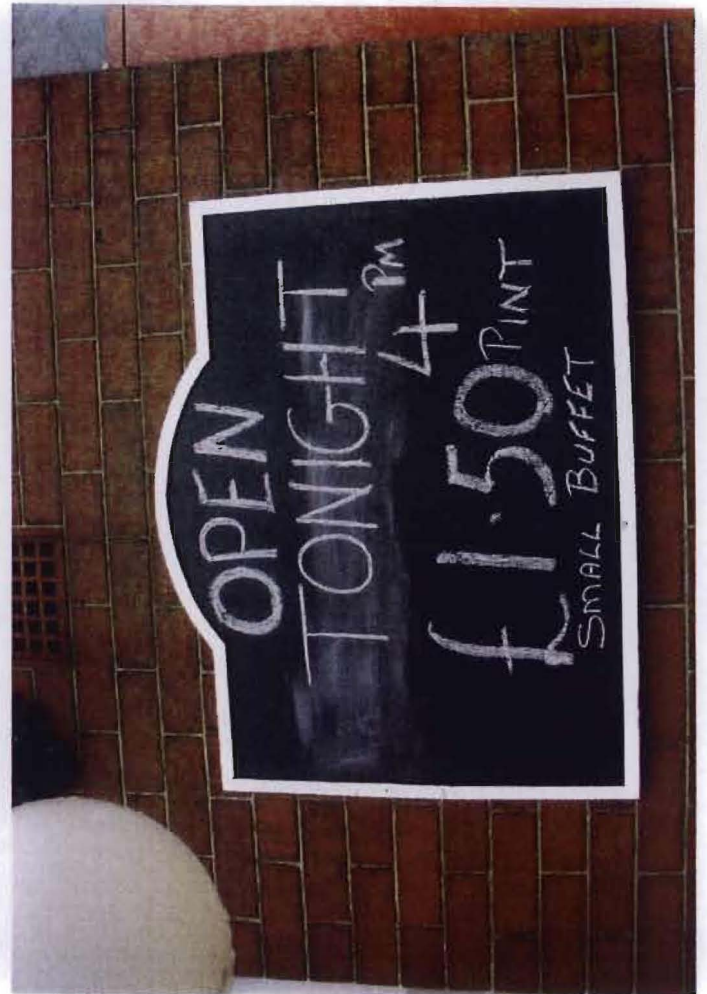 OPEN
TONIGHT
4 PM
£1.50 PINT
SMALL BUFFET